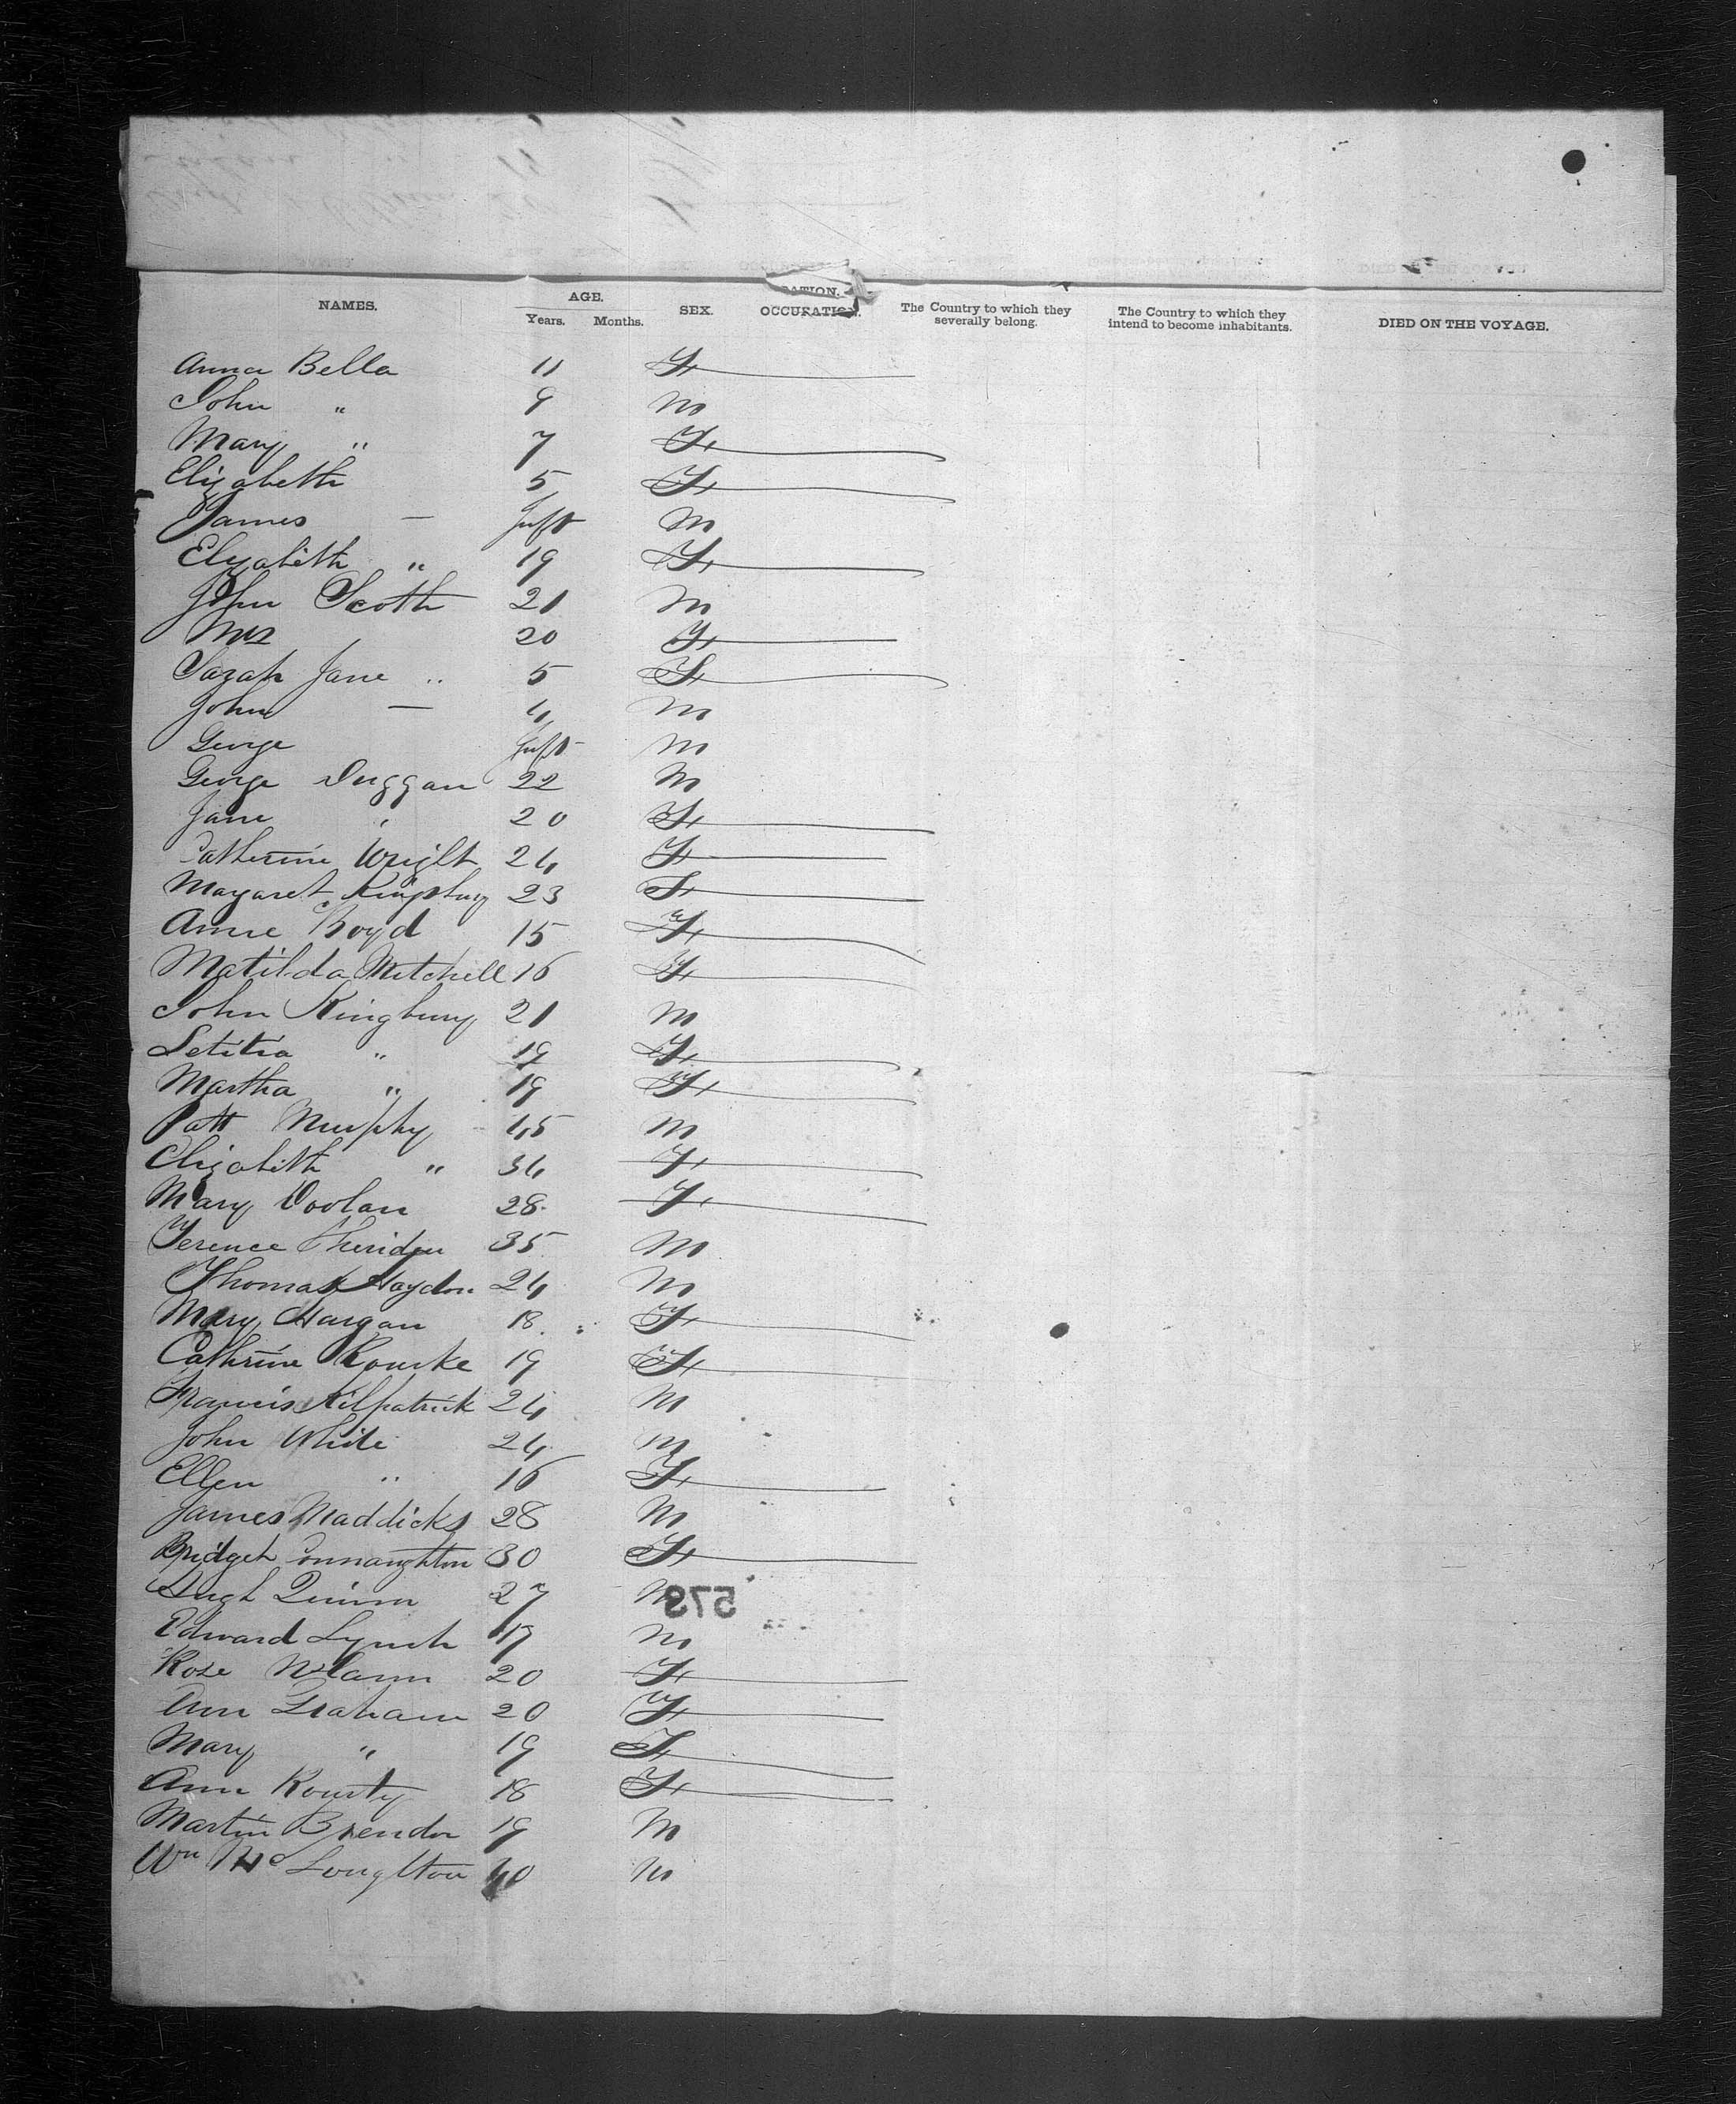 NAMES. AGE. Years. Months. SEX. OCCUPATION. The Country to which they severally belong. The Country to which they intend to become inhabitants. DIED ON THE VOYAGE.
Anna Bella 11 F
John " 9 M
Mary " 7 F
Elizabeth 5 F
James — Inft M
Elizabeth " 19 F
John Scott 21 M
Mrs 20 F
Sarah Jane " 5 F
John — 4 M
George Inft M
George Duggan 22 M
Jane " 20 F
Catherine Wright 24 F
Margaret Kingsbury 23 F
Annie Boyd 15 F
Matilda Mitchell 16 F
John Kingbury 21 M
Letitia " 19 F
Martha " 19 F
Patt Murphy 45 M
Elizabeth " 34 F
Mary Doolan 28 F
Terence Sheridan 35 M
Thomas Haydon 24 M
Mary Hargan 18 F
Cathrine Rourke 19 F
Francis Kilpatrick 24 M
John White 24 M
Ellen " 16 F
James Maddicks 28 M
Bridget Connaughton 30 F
Hugh Quinn 27 M
578
Edward Lynch 17 M
Rose 20 F
Ann Graham 20 F
Mary " 19 F
Ann 18 F
Martin 19 M
Wm Mc Loughton 40 M